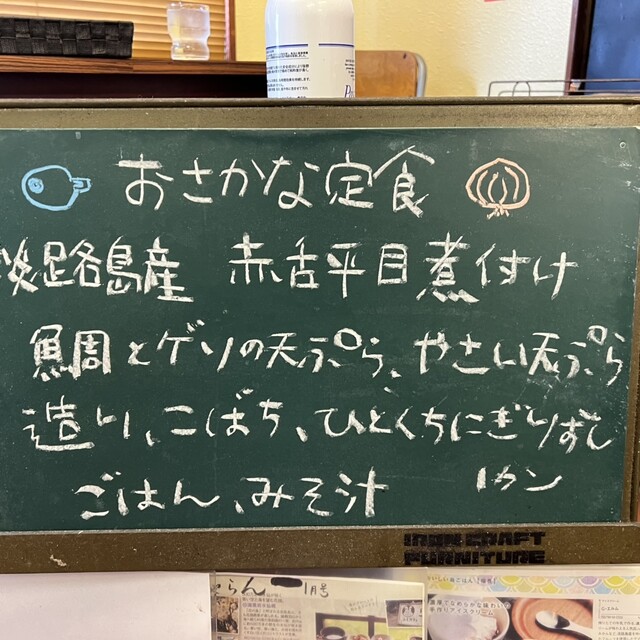 おさかな定食
淡路島産 赤舌平目煮付け
鯛とゲソの天ぷら、やさい天ぷら
造り、こばち、ひとくちにぎりずし
1カン
ごはん、みそ汁
IRON CRAFT
FURNITURE
らん 1月号